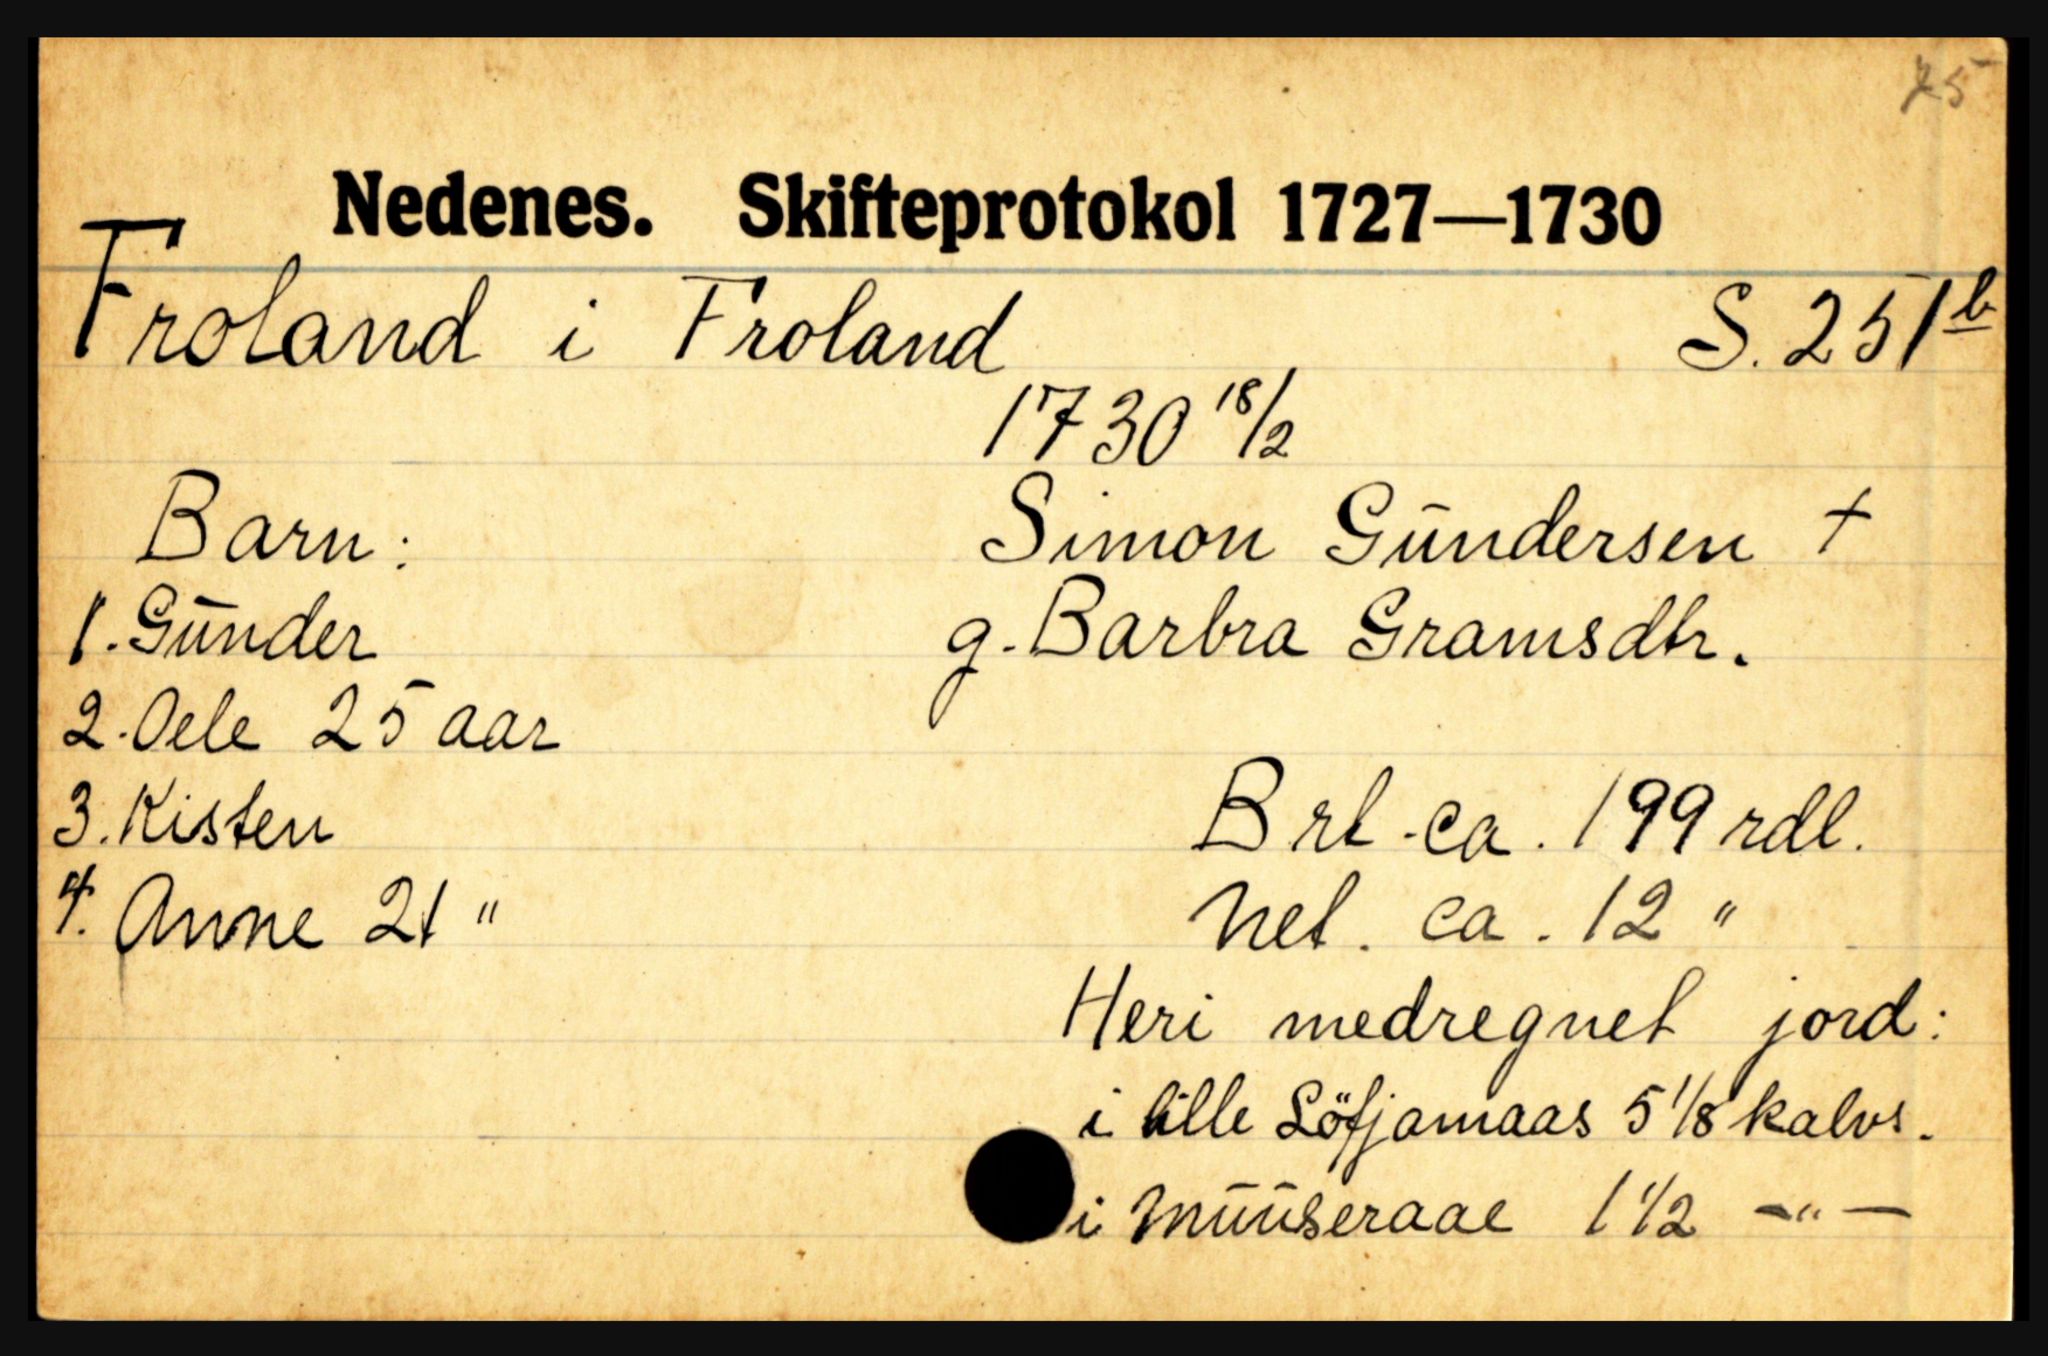 75
Nedenes. Skifteprotokol 1727—1730
Froland i Froland S. 251 b
1730 18/2
Barn: Simon Gūndersen +
1. Gūnder g. Barbra Gramsdtr.
2. Oele 25 aar
3. Kisten Brt. ca. 199 rdl.
4. Anne 21 " Net. ca. 12 "
Heri medregnet jord:
i lille Löfjamaas 5 1/8 kalvs.
i Mūūseraae 1 1/2 —"—